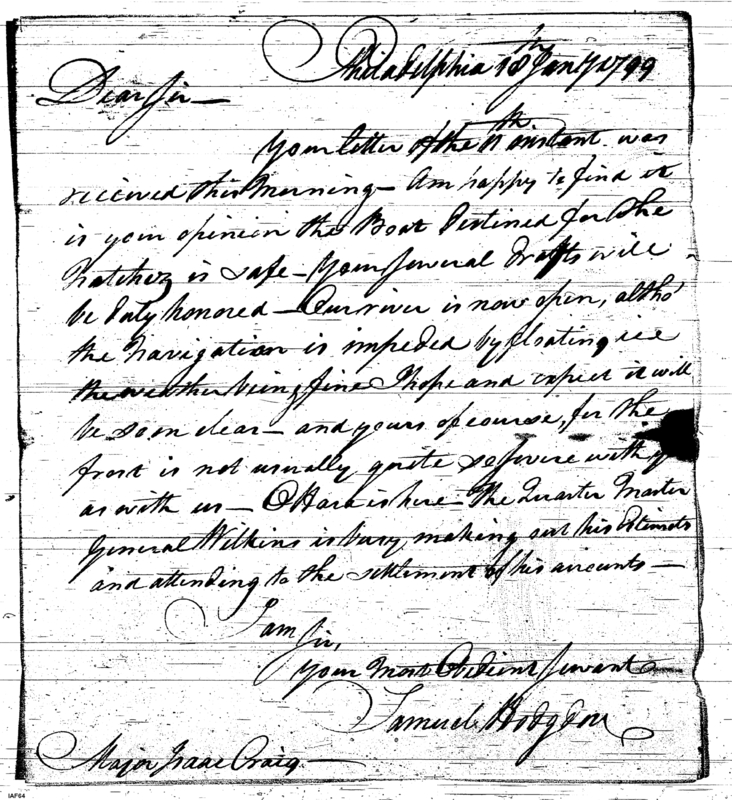 Philadelphia 18th Jany 1799
Dear Sir —
Your letter of the 11th instant was
received this Morning — Am happy to find it
is your opinion the Boat Destined for the
Natchez is safe — Your several Drafts will
be Duly honored — Our river is now open, altho'
the Navigation is impeded by floating ice
the weather being fine I hope and expect it will
be soon clear — and yours of course, for the
frost is not usually quite so severe with y
as with us — O Hara is here — The Quarter Master
General Wilkins is busy making out his Estimates
and attending to the settlement of his accounts —
I am Sir,
Your Most Obedient Servant
Samuel Hodgdon
Major Isaac Craig —
IAF64